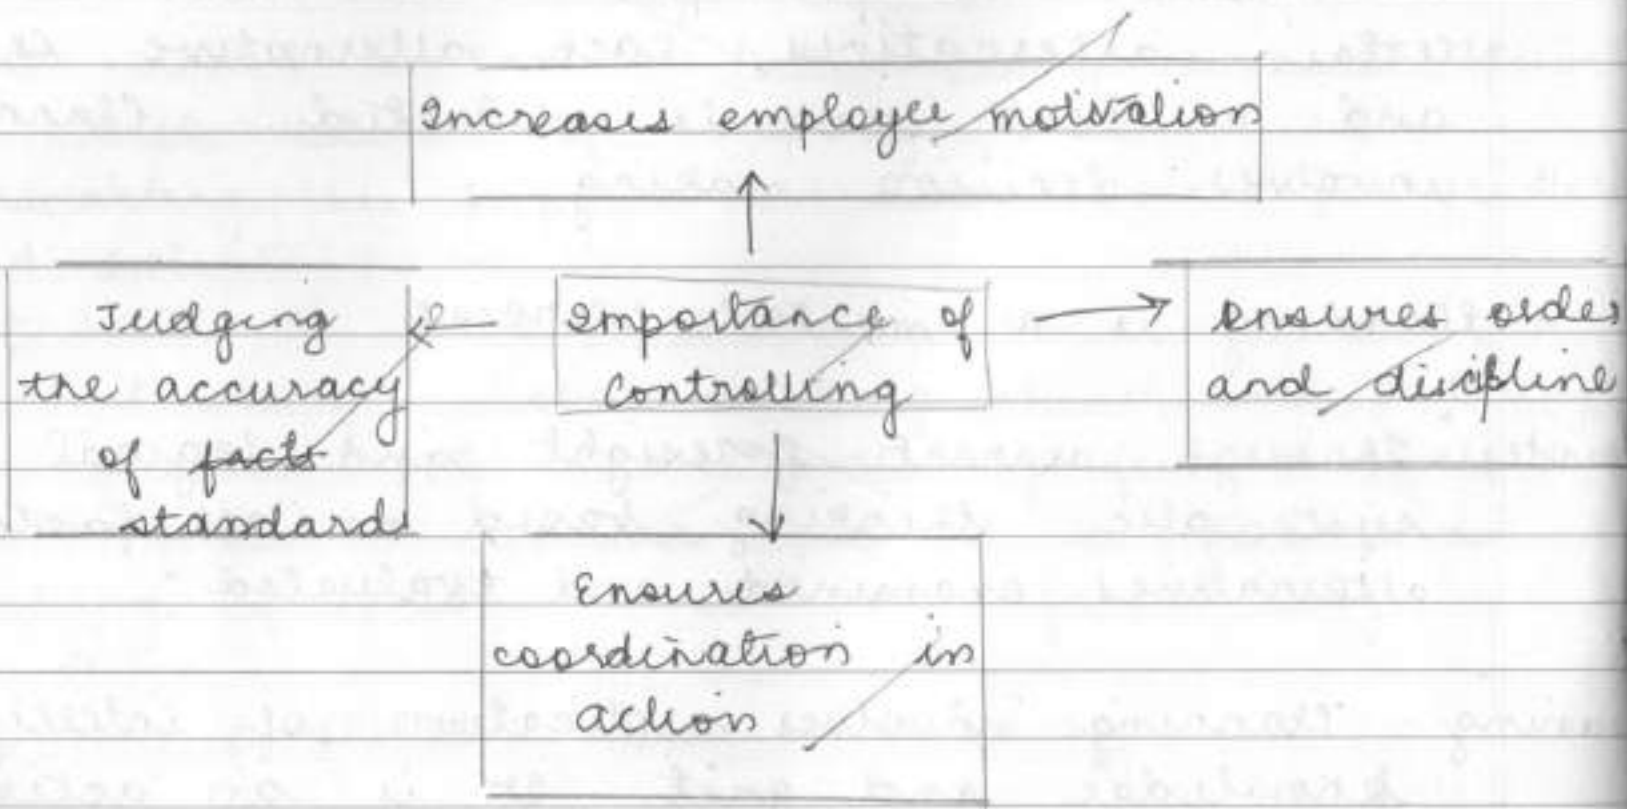 Increases employee motivation
Judging
the accuracy
of facts
standards
Importance of
Controlling
ensures order
and discipline
Ensures
coordination in
action